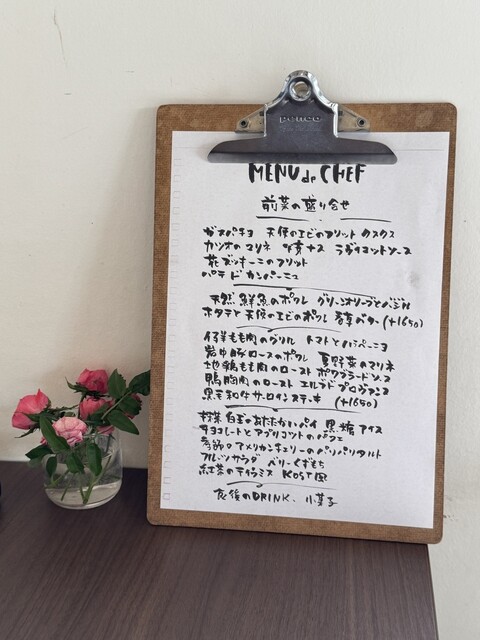 penco
MENU de CHEF
前菜の盛り合せ
ガスパチョ 天使のエビのフリット クスクス
カツオのマリネ 茄子 ラヴィゴットソース
花ズッキーニのフリット
パテ ド カンパーニュ
天然 鮮魚のポワレ グリーンオリーブとバジル
ホタテと天使のエビのポワレ 香草バター (+1650)
仔羊もも肉のグリル トマトとハラペーニョ
岩中豚ロースのポワレ 夏野菜のマリネ
地鶏もも肉のロースト ポワヴラードソース
鴨胸肉のロースト エルブ ド プロヴァンス
黒毛和牛サーロインステーキ (+1650)
抹茶 白玉のあたたかいパイ 黒糖アイス
チョコレートとアプリコットのパフェ
季節のアメリカンチェリーのパリパリタルト
フルーツサラダ ベリーくずもち
紅茶のティラミス KOST風
食後のDRINK、小菓子